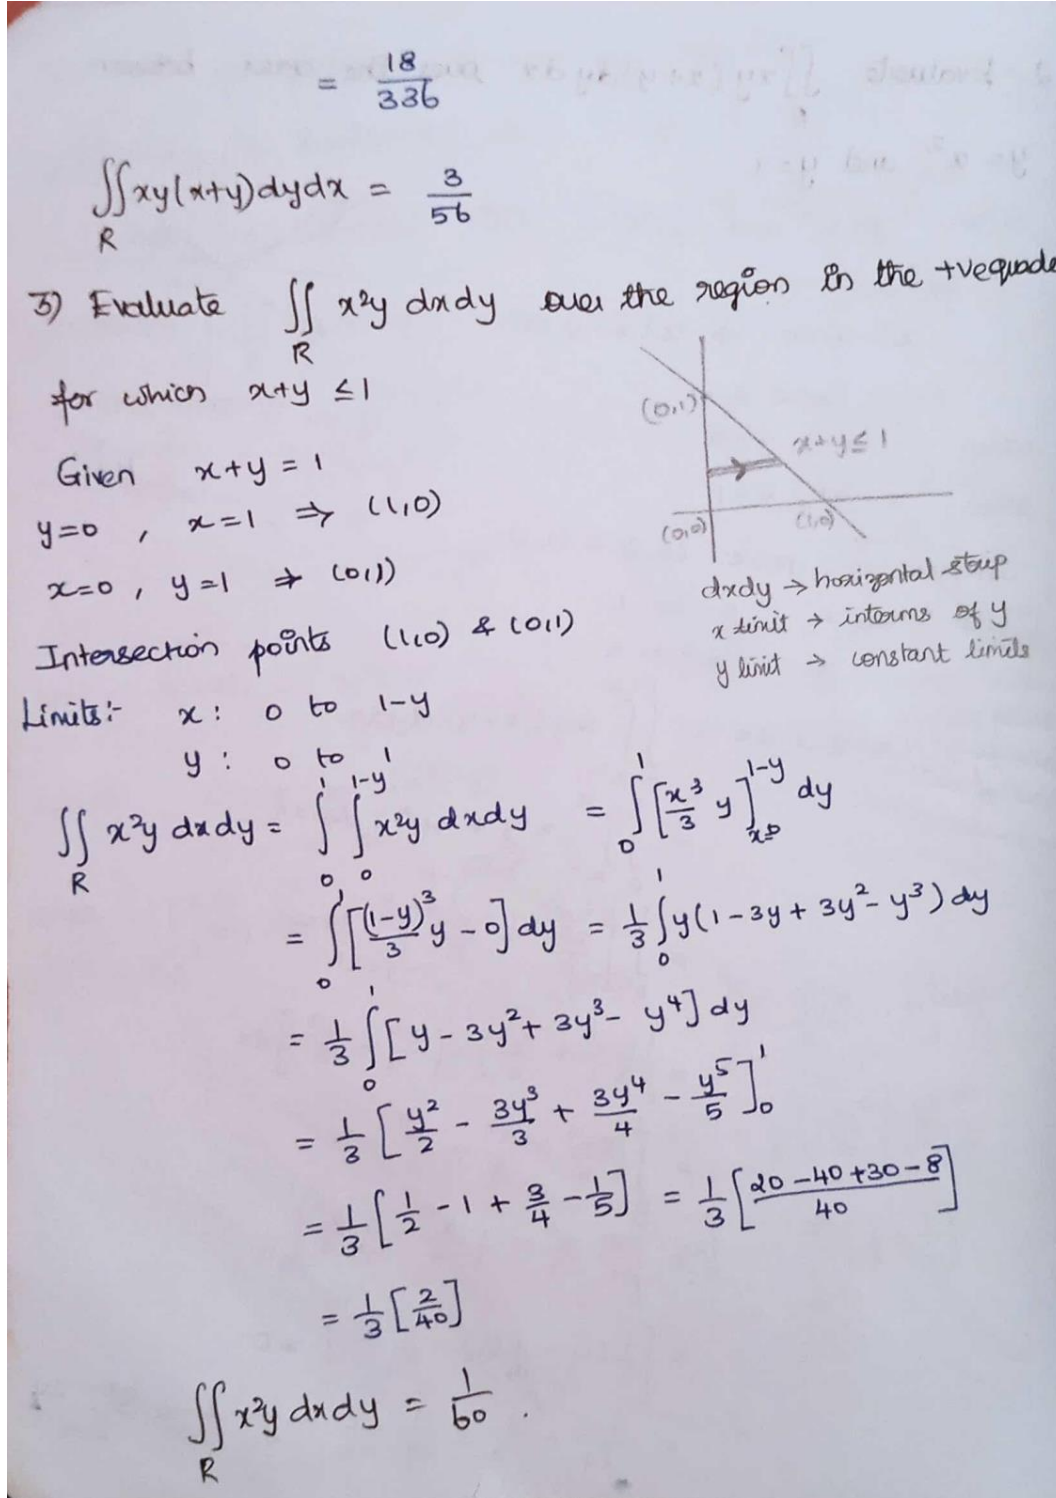 = 18/336
∬_R xy(x+y)dydx = 3/56
3) Evaluate ∬_R x²y dxdy over the region in the +ve
for which x+y ≤ 1
(0,1)
x+y ≤ 1
(0,0) (1,0)
Given x+y = 1
y=0 , x=1 ⇒ (1,0)
x=0 , y=1 ⇒ (0,1)
Intersection points (1,0) & (0,1)
dxdy → horizontal strip
x limit → interms of y
y limit → constant limits
Limits:- x : 0 to 1-y
y : 0 to 1
∬_R x²y dxdy = ∫_0^1 ∫_0^{1-y} x²y dxdy = ∫_0^1 [x³/3 y]_{x=0}^{1-y} dy
= ∫_0^1 [(1-y)³/3 y - 0] dy = 1/3 ∫_0^1 y(1 - 3y + 3y² - y³) dy
= 1/3 ∫_0^1 [y - 3y² + 3y³ - y⁴] dy
= 1/3 [y²/2 - 3y³/3 + 3y⁴/4 - y⁵/5]_0^1
= 1/3 [1/2 - 1 + 3/4 - 1/5] = 1/3 [20 - 40 + 30 - 8/40]
= 1/3 [2/40]
∬_R x²y dxdy = 1/60 .